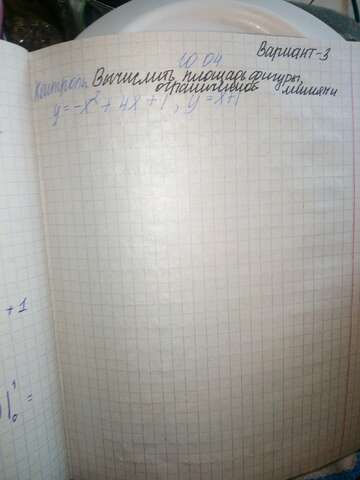 10 04
Вариант-3
Контроль Вычислить площадь фигуры,
ограниченной линиями
y=-x²+4x+1, y=x+1
+ 1
|₀¹ =